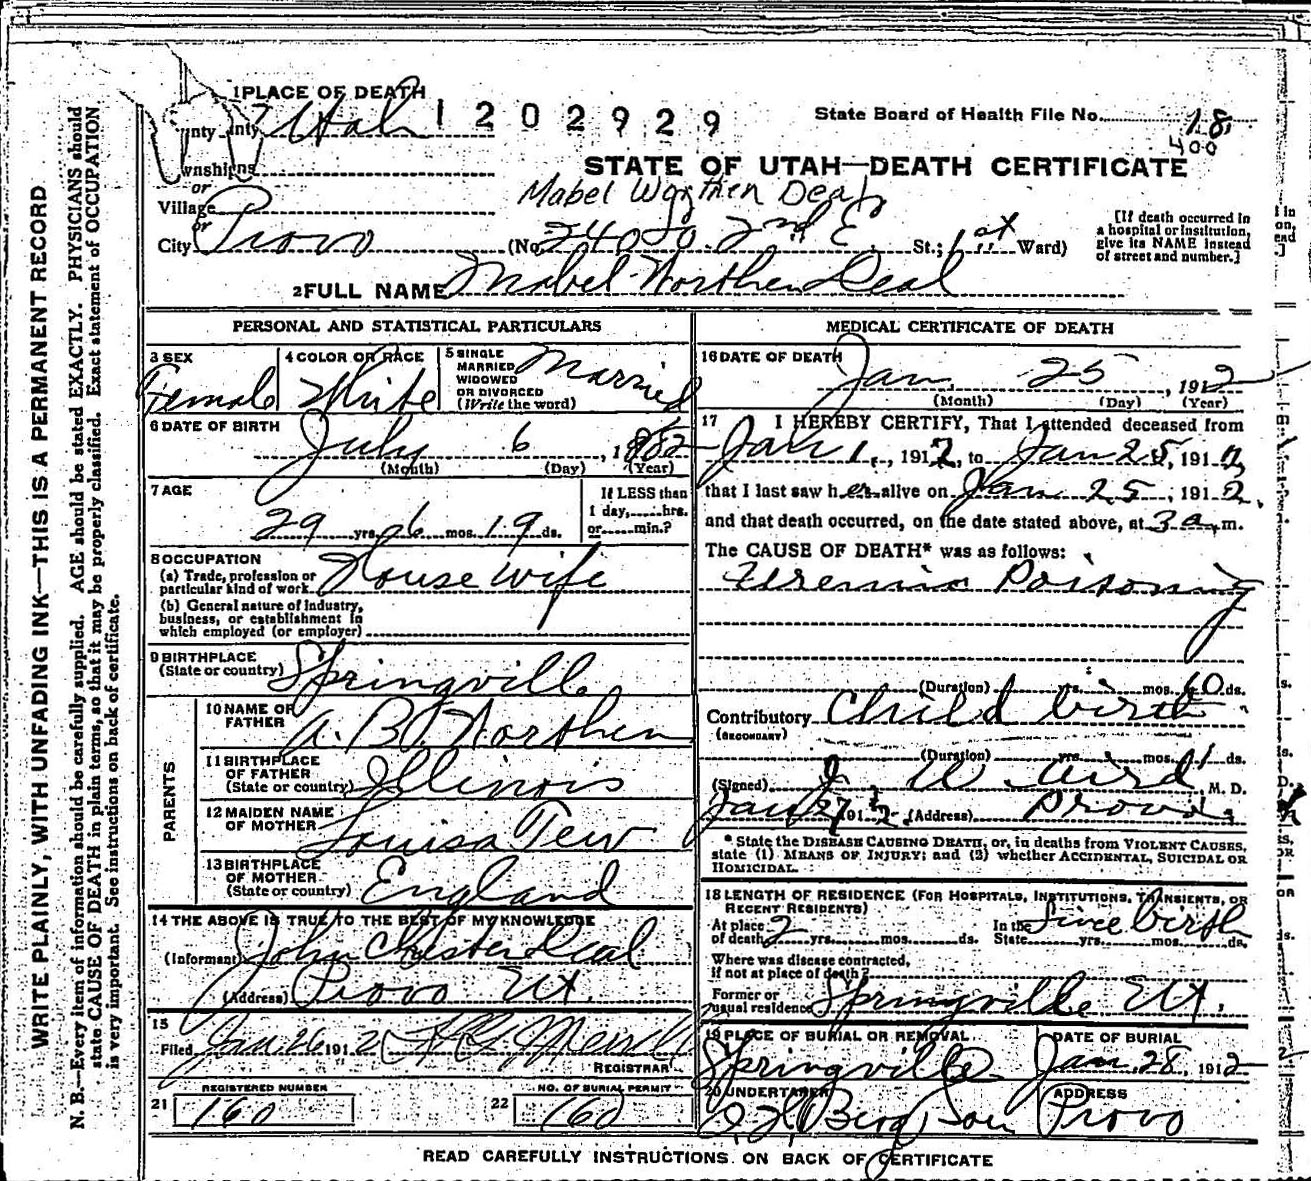 1PLACE OF DEATH
unty Utah 1 2 0 2 9 2 9 State Board of Health File No. 18
400
wnship
or
STATE OF UTAH—DEATH CERTIFICATE
Mabel Worthen Deal
Village
or
City Provo (No. 240 2nd E. St.; 1st Ward)
[If death occurred in
a hospital or institution,
give its NAME instead
of street and number.]
2FULL NAME Mabel Worthen Deal
WRITE PLAINLY, WITH UNFADING INK—THIS IS A PERMANENT RECORD
N. B.—Every item of information should be carefully supplied. AGE should be stated EXACTLY. PHYSICIANS should
state CAUSE OF DEATH in plain terms, so that it may be properly classified. Exact statement of OCCUPATION
is very important. See instructions on back of certificate.
PERSONAL AND STATISTICAL PARTICULARS
3 SEX Female
4 COLOR OR RACE White
5 SINGLE
MARRIED
WIDOWED
OR DIVORCED
(Write the word) Married
6 DATE OF BIRTH
July 6, 1882
(Month) (Day) (Year)
7 AGE
29 yrs. 6 mos. 19 ds.
If LESS than
1 day,......hrs.
or......min.?
8 OCCUPATION
(a) Trade, profession or
particular kind of work House wife
(b) General nature of industry,
business, or establishment in
which employed (or employer)
9 BIRTHPLACE
(State or country) Springville
PARENTS
10 NAME OF
FATHER A. B. Worthen
11 BIRTHPLACE
OF FATHER
(State or country) Illinois
12 MAIDEN NAME
OF MOTHER Louisa Tew
13 BIRTHPLACE
OF MOTHER
(State or country) England
14 THE ABOVE IS TRUE TO THE BEST OF MY KNOWLEDGE
(Informant) John Chester Deal
(Address) Provo Ut.
15
Filed Jan 26 1912
REGISTRAR
REGISTERED NUMBER
21 160
NO. OF BURIAL PERMIT
22 160
MEDICAL CERTIFICATE OF DEATH
16 DATE OF DEATH
Jan. 25, 1912
(Month) (Day) (Year)
17 I HEREBY CERTIFY, That I attended deceased from
Jan 1, 1912, to Jan 25, 1912,
that I last saw her alive on Jan 25, 1912,
and that death occurred, on the date stated above, at 3 a. m.
The CAUSE OF DEATH* was as follows:
Uremic Poisoning
(Duration) yrs. mos. 60 ds.
Contributory Child birth
(SECONDARY)
(Duration) yrs. mos. 1 ds.
(Signed) J W Aird, M. D.
Jan 27 1912. (Address) Provo
* State the DISEASE CAUSING DEATH, or, in deaths from VIOLENT CAUSES,
state (1) MEANS OF INJURY; and (2) whether ACCIDENTAL, SUICIDAL OR
HOMICIDAL.
18 LENGTH OF RESIDENCE (FOR HOSPITALS, INSTITUTIONS, TRANSIENTS, OR
RECENT RESIDENTS)
At place
of death 2 yrs. mos. ds.
In the
State Since birth yrs. mos. ds.
Where was disease contracted,
if not at place of death?
Former or
usual residence Springville Ut.
19 PLACE OF BURIAL OR REMOVAL
Springville
DATE OF BURIAL
Jan. 28, 1912
20 UNDERTAKER
ADDRESS
Provo
READ CAREFULLY INSTRUCTIONS ON BACK OF CERTIFICATE